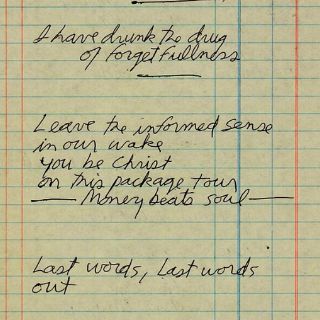 I have drunk the drug
of forgetfullness
Leave the informed sense
in our wake
you be Christ
on this package tour
— Money beats soul —
Last words, Last words
out